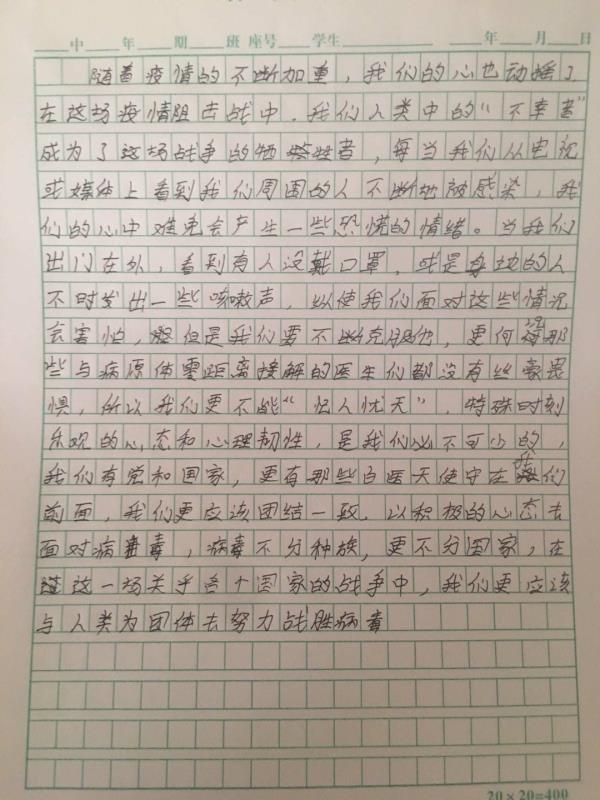 中 年 期 班 座号 学生 年 月 日
随着疫情的不断加重，我们的心也动摇了
在这场疫情阻击战中．我们人类中的“不幸者”
成为了这场战争的牺牲者，每当我们从电视
或媒体上看到我们周围的人不断地被感染，我
们的心中难免会产生一些恐慌的情绪。当我们
出门在外，看到有人没戴口罩，或是身边的人
不时发出一些咳嗽声，以使我们面对这些情况
会害怕，但是我们要不断克服他，更何况那
些与病原体零距离接解的医生们都没有丝毫畏
惧，所以我们更不能“忆人忧天”．特殊时刻
乐观的心态和心理韧性，是我们必不可少的，
我们有党和国家，更有那些白医天使守在我们
前面，我们更应该团结一致．以积极的心态去
面对病毒，病毒不分种族，更不分国家，在
这一场关乎各个国家的战争中，我们更应该
与人类为团体去努力战胜病毒
20×20=400